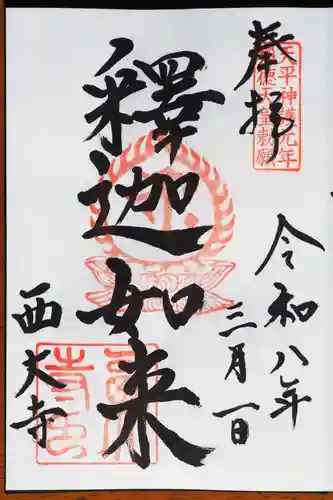 奉拝
天平神護元年
称徳天皇勅願
令和八年
三月一日
釋迦如来
西大寺